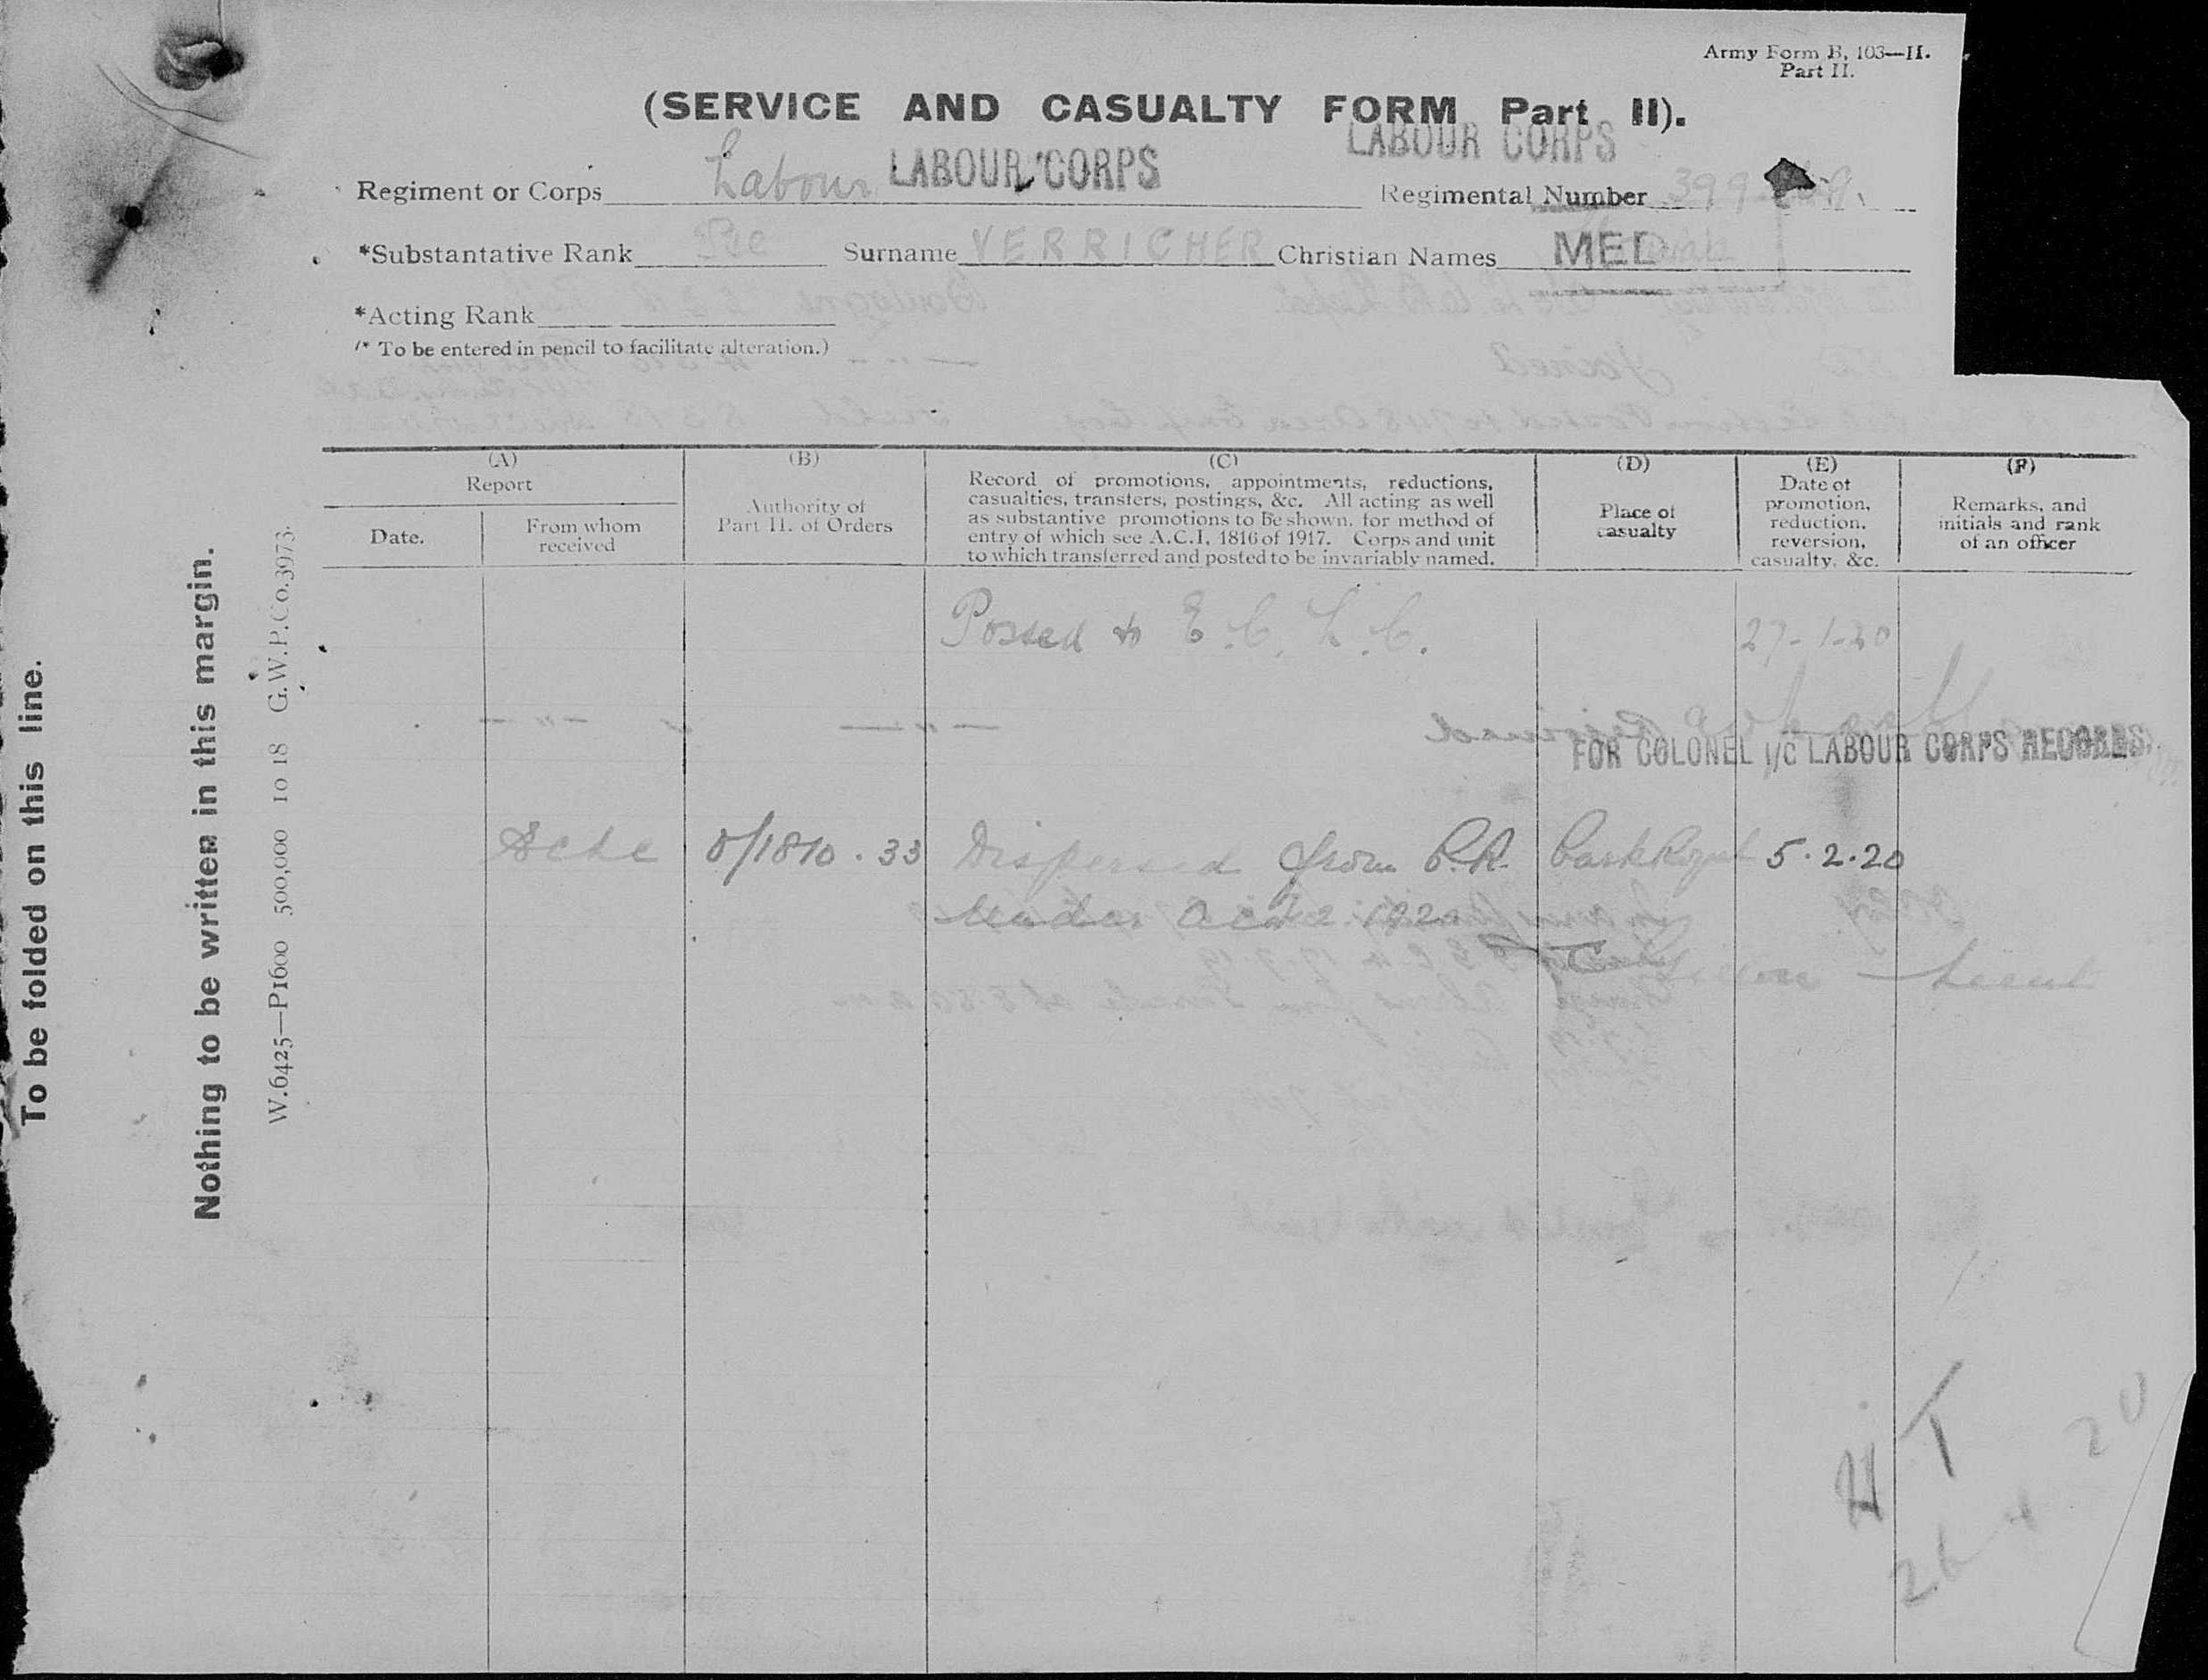 Army Form B, 103—II.
Part II.
(SERVICE AND CASUALTY FORM Part II).
LABOUR CORPS
Regiment or Corps Labour LABOUR CORPS Regimental Number 399
*Substantative Rank Pte Surname VERRICHER Christian Names MED
*Acting Rank
(* To be entered in pencil to facilitate alteration.)
To be folded on this line.
Nothing to be written in this margin.
W.6425—P1600 500,000 10 18 G.W.P.Co.3973.
(A)
Report
Date.
From whom
received
(B)
Authority of
Part II. of Orders
(C)
Record of promotions, appointments, reductions,
casualties, transfers, postings, &c. All acting as well
as substantive promotions to be shown. for method of
entry of which see A.C.I, 1816 of 1917. Corps and unit
to which transferred and posted to be invariably named.
(D)
Place of
casualty
(E)
Date of
promotion,
reduction,
reversion,
casualty, &c.
(F)
Remarks, and
initials and rank
of an officer
Posted to E.C.L.C. 27-1-20
FOR COLONEL I/C LABOUR CORPS RECORDS.
Eclc 0/1810.33 Dispersed from P.R. Park Royal 5.2.20
Under 1920
Lieut
HT
26 4 20